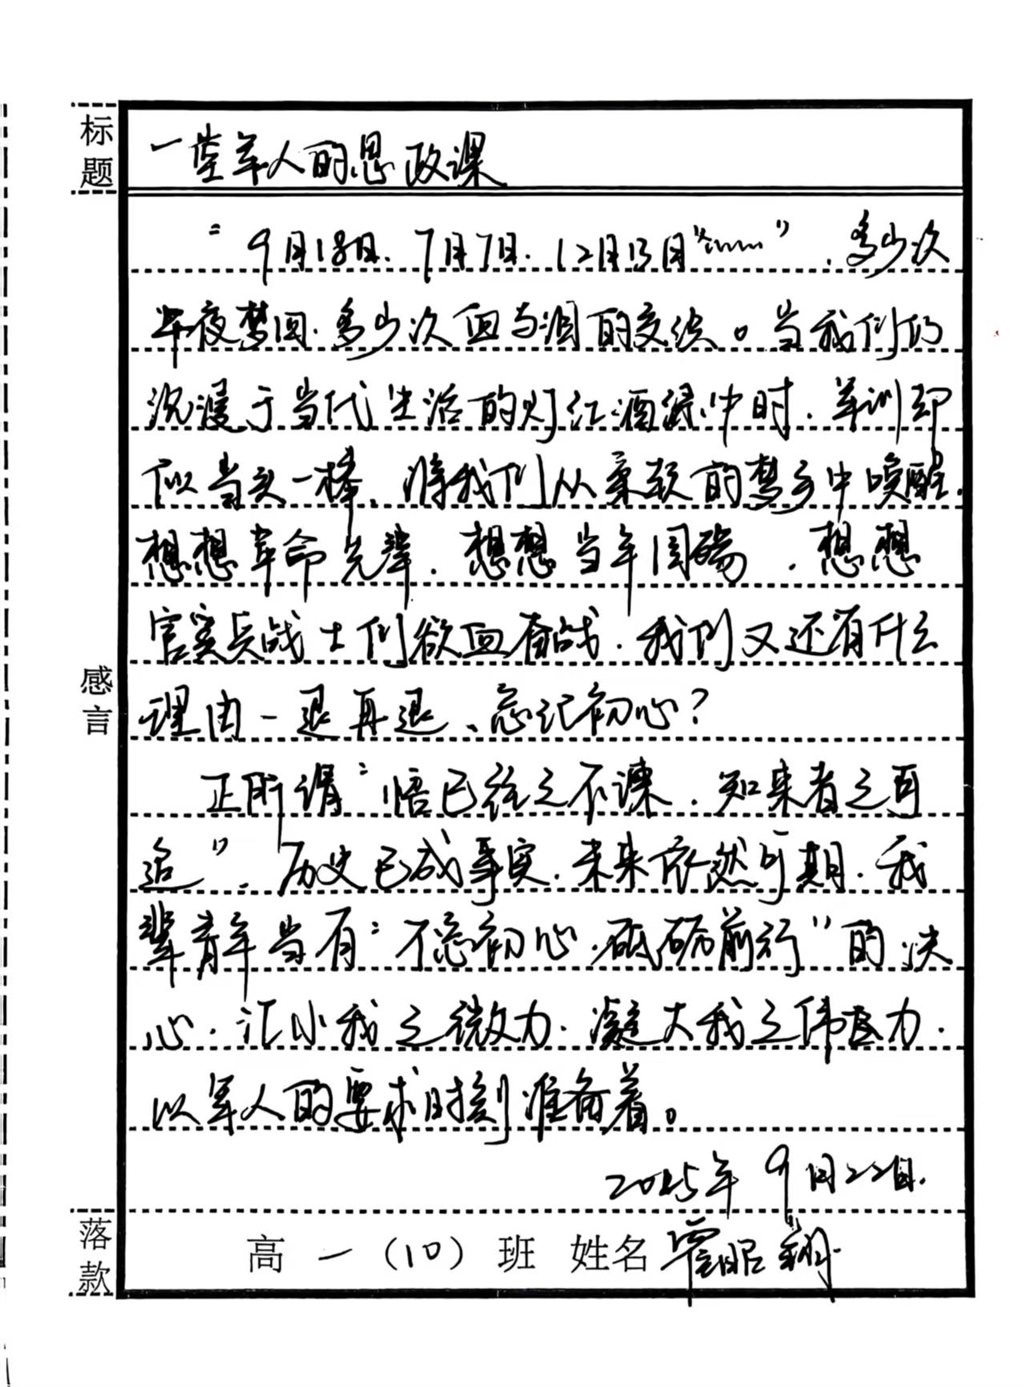 标题
一堂军人的思政课
“9月18日、7月7日、12月13日“……”,多少次
午夜梦回,多少次血与泪的交织。当我们仍
沉浸于当代生活的灯红酒绿中时,军训却
似当头一棒,将我们从柔软的梦乡中唤醒,
想想革命先辈,想想当年国殇,想想
官兵战士们欲血奋战,我们又还有什么
理由一退再退、忘记初心?
感言
正所谓“悟已往之不谏,知来者之可
追”,历史已成事实,未来依然可期,我
辈青年当有“不忘初心,砥砺前行”的决
心,汇小我之微力,凝大我之伟力,
以军人的要求时刻准备着。
2025年9月22日.
落款
高一(10)班 姓名